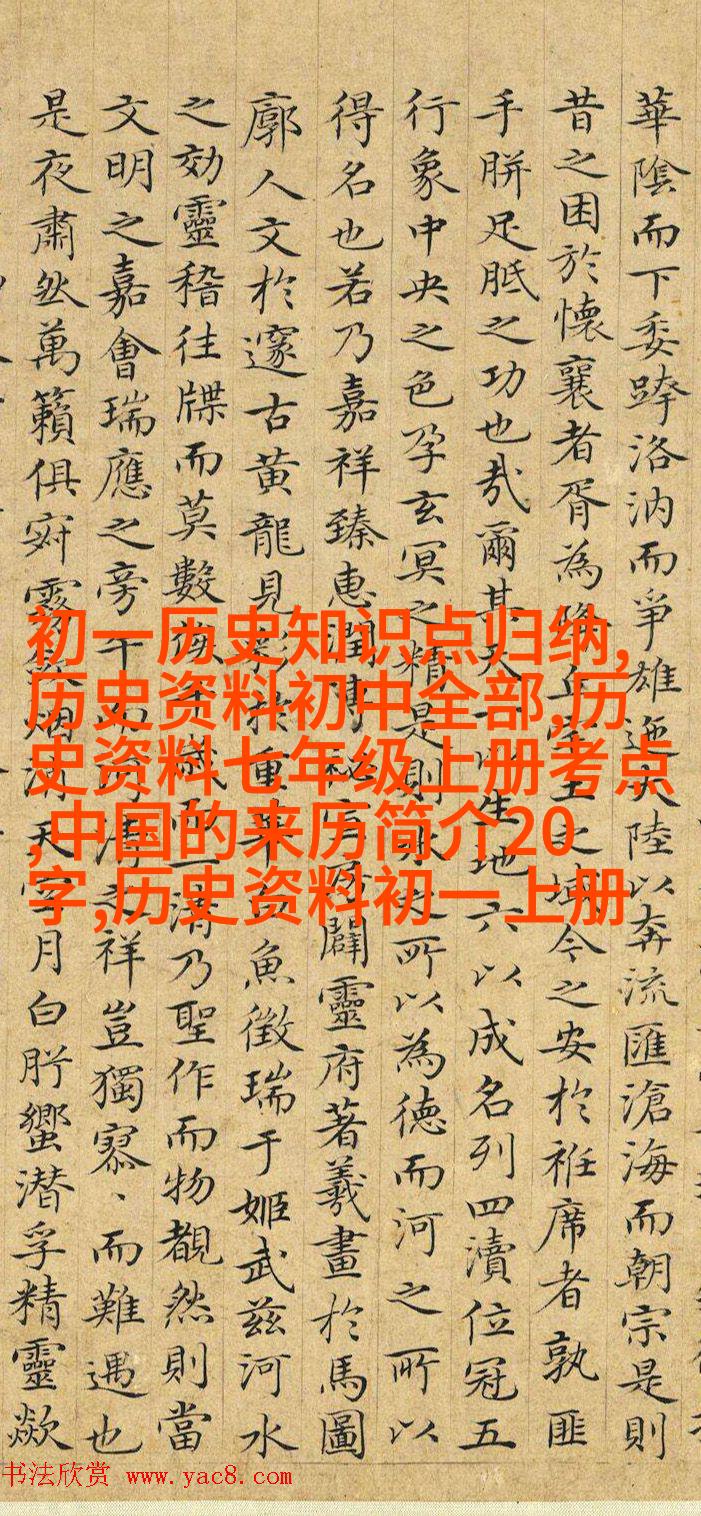 華陰而下委跨洛汭而爭雄迤大陸以奔流匯滄海而朝宗是則
昔之困於懷襄者胥為降丘宅土之域今之安於袵席者孰匪
手胼足胝之功也哉爾其天一以生地六以成名列四瀆位冠五
行象中央之色孕玄冥之精是則水史所以為德而河之所以
得名也若乃嘉祥臻惠潤闢靈府著羲畫於馬圖
廓人文於邃古黃龍見重華白魚徵瑞于姬武茲河水
之効靈稽往牒而莫數歲而一清乃聖作而物覩然則當
文明之嘉會瑞應之旁午清之祥豈獨寥、而難遇也
是夜肅然萬籟俱寂露烟消天空月白肸蠁潛孚精靈歘
初一历史知识点归纳,
历史资料初中全部,历
史资料七年级上册考点
,中国的来历简介20
字,历史资料初一上册
书法欣赏 www.yac8.com